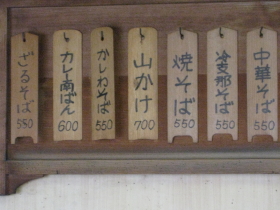 中華そば
550
冷支那そば
550
焼そば
550
山かけ
700
かしわそば
550
カレー南ばん
600
ざるそば
550